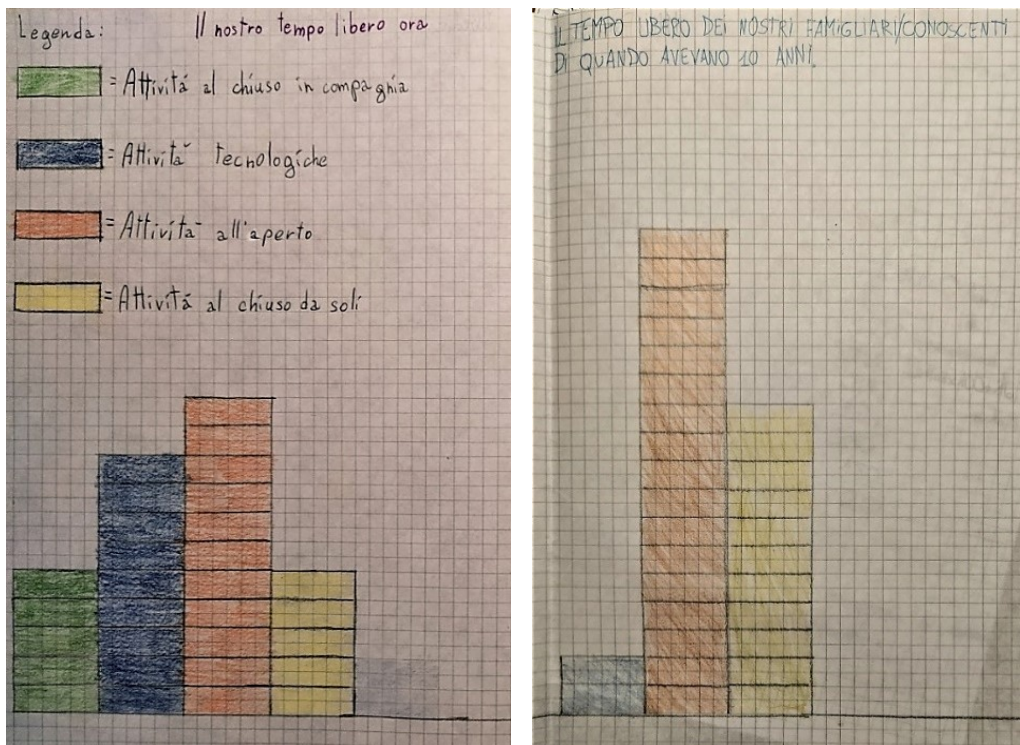 Legenda:
Il nostro tempo libero ora
= Attivitá al chiuso in compagnia
= Attivitá tecnologiche
= Attivitá all'aperto
= Attivitá al chiuso da soli
IL TEMPO LIBERO DEI NOSTRI FAMIGLIARI/CONOSCENTI
DI QUANDO AVEVANO 10 ANNI.